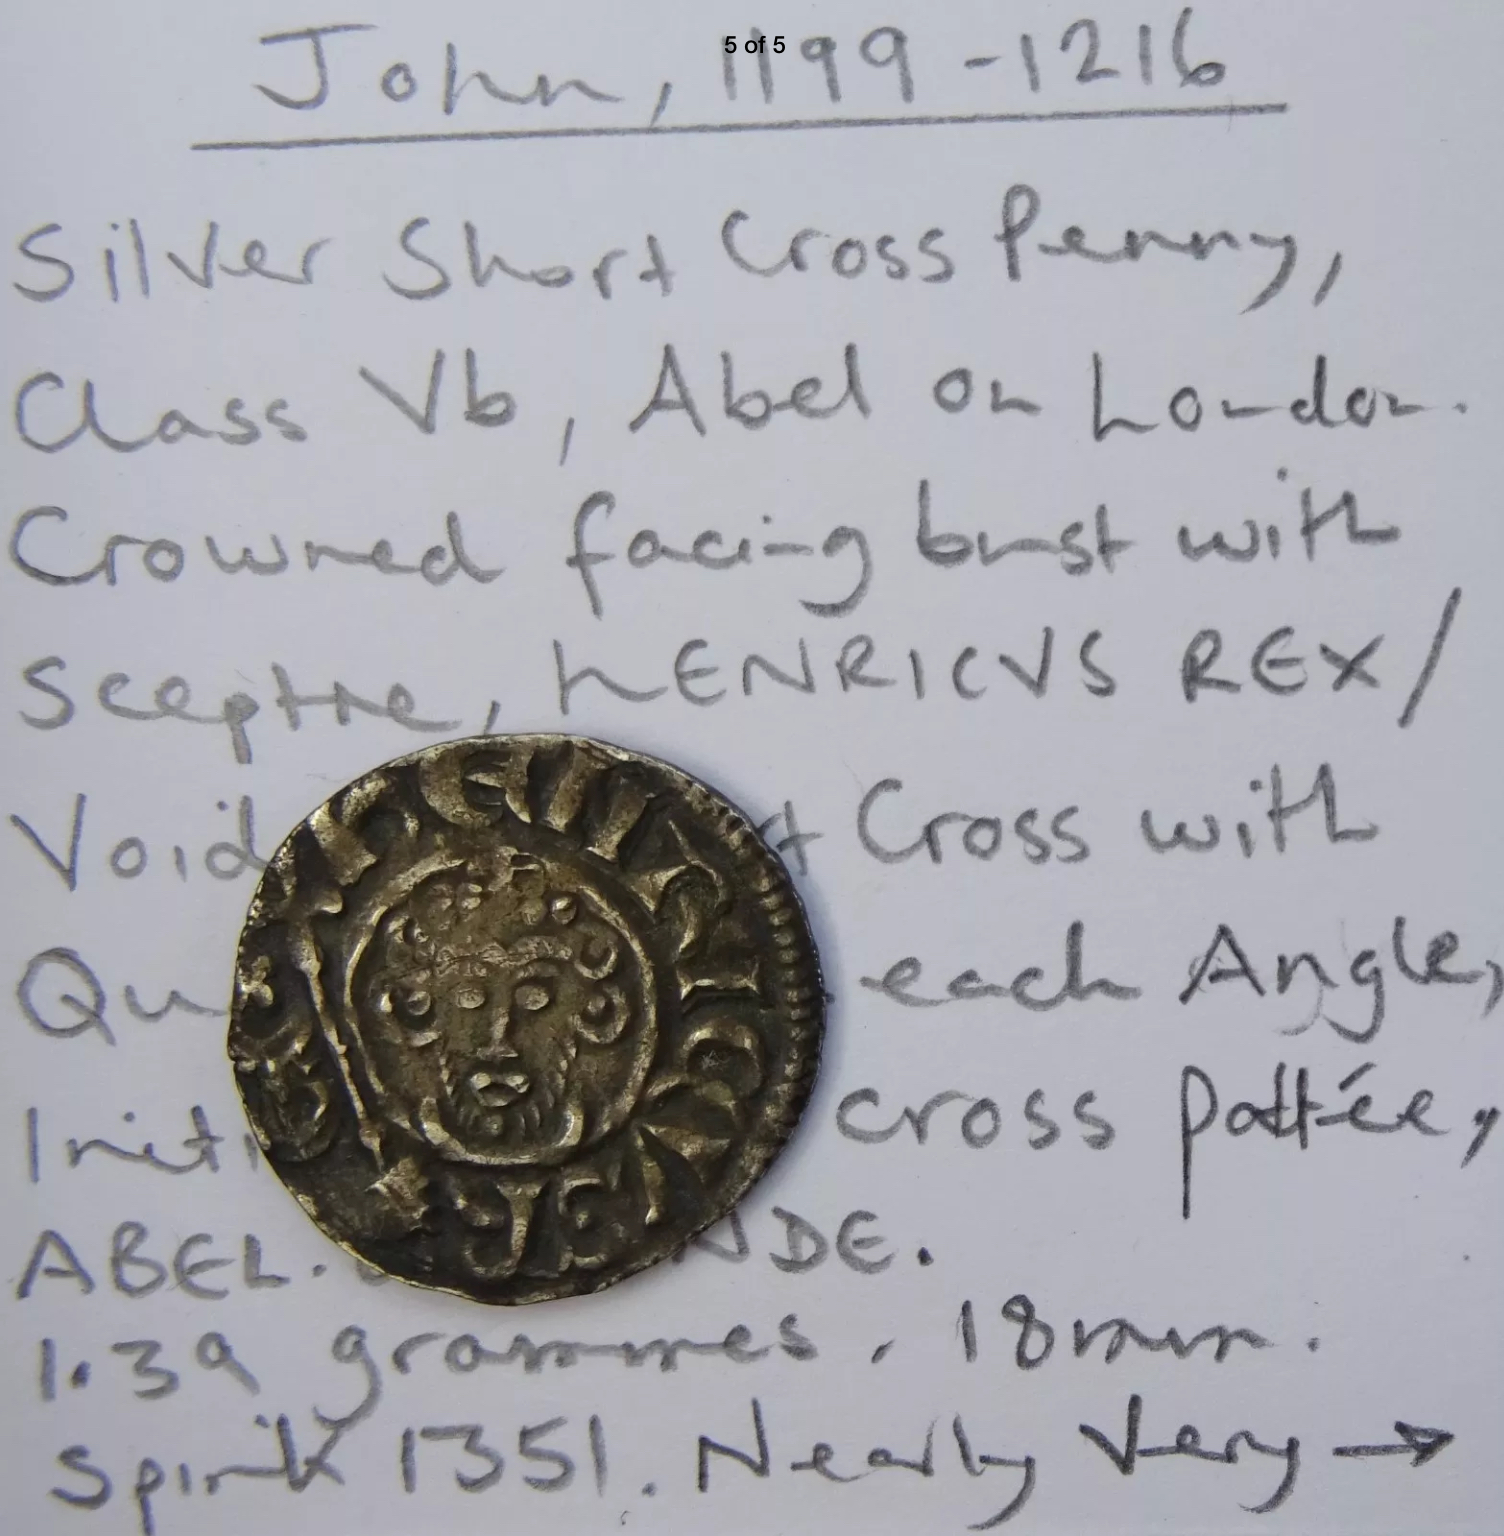 5 of 5
John, 1199-1216
Silver Short Cross Penny,
Class Vb, Abel on London.
Crowned facing bust with
Sceptre, hENRICVS REX/
Cross with
each Angle,
cross pattée,
ABEL.
1.39 grammes, 18mm.
Spink 1351. Nearly Very →
hENRICVS REX